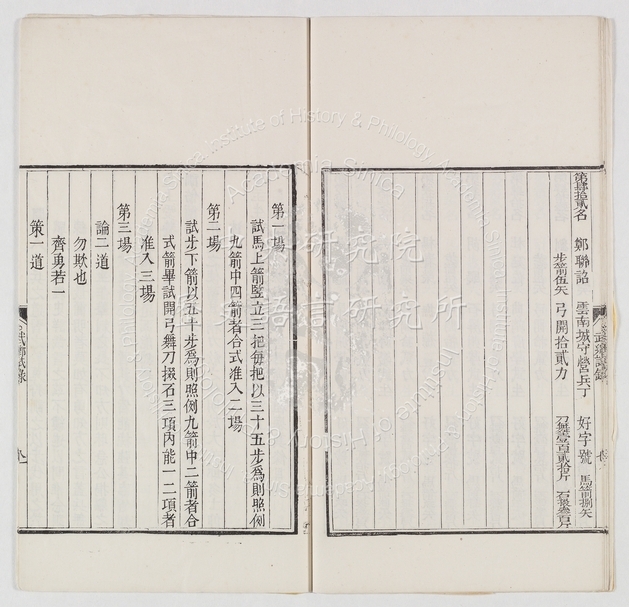 第肆拾貳名
鄭聯詔 雲南城守營兵丁 好字號 馬箭捌矢
步箭伍矢 弓開拾貳力 刀舞壹百貳拾斤 石掇叁百斤
第一場
試馬上箭竪立三把每把以三十五步爲則照例
九箭中四箭者合式准入二場
第二場
試步下箭以五十步爲則照例九箭中二箭者合
式箭畢試開弓舞刀掇石三項內能一二項者
准入三場
第三場
論二道
勿欺也
齊勇若一
策一道
武鄉試錄
Institute of History & Philology, Academia Sinica
歷史語言研究所